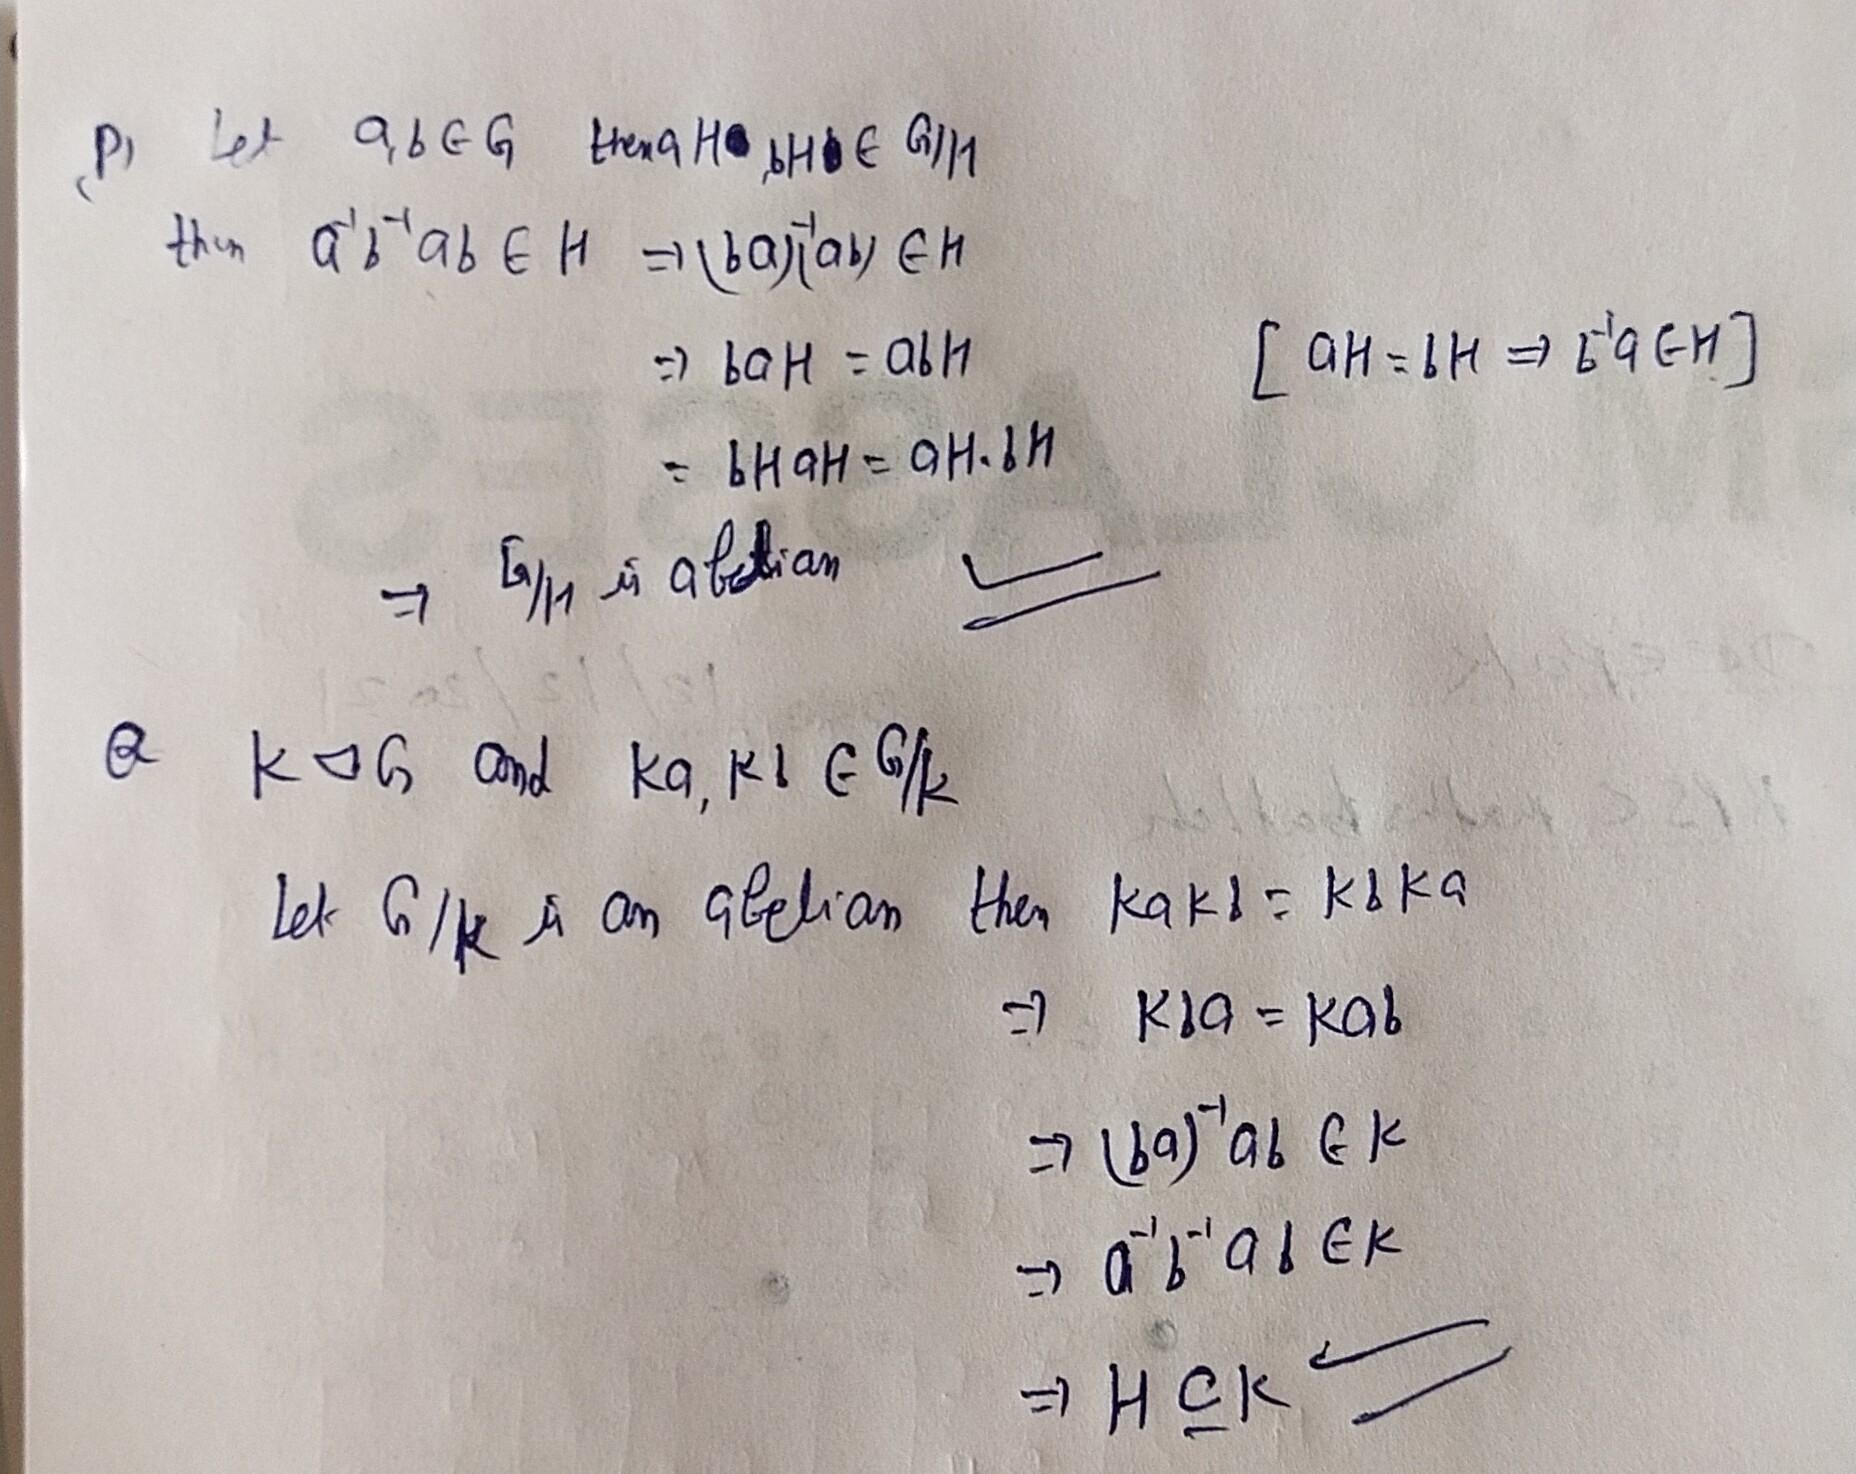 P) Let a,b ∈ G then aH, bH ∈ G/H
then a⁻¹b⁻¹ab ∈ H ⇒ (ba)⁻¹(ab) ∈ H
⇒ baH = abH [aH = bH ⇒ b⁻¹a ∈ H]
= bHaH = aH.bH
⇒ G/H is abelian
Q K ⊲ G and Ka, Kb ∈ G/K
Let G/K is an abelian then KaKb = KbKa
⇒ Kba = Kab
⇒ (ba)⁻¹ab ∈ K
⇒ a⁻¹b⁻¹ab ∈ K
⇒ H ⊆ K